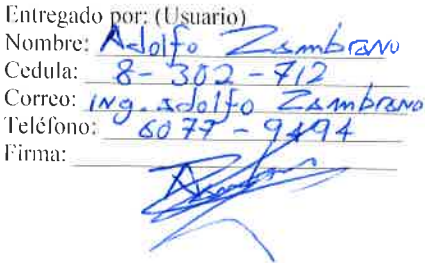 Entregado por: (Usuario)
Nombre: Adolfo Zambrano
Cedula: 8-302-712
Correo: ing.adolfo Zambrano
Teléfono: 6077-9494
Firma: